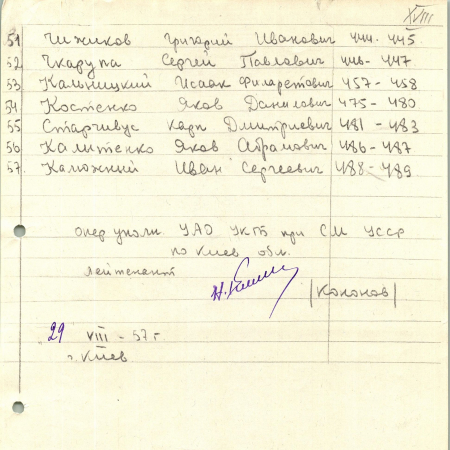 XVIII
51 Чижиков Григорий Иванович 444-445
52 Чкарупа Сергей Павлович 446-447
53 Кальницкий Исаак Филаретович 457-458
54 Костенко Яков Данилович 475-480
55 Старчивус Карп Дмитриевич 481-483
56 Калитенко Яков Абрамович 486-487
57. Калюжний Иван Сергеевич 488-489
Опер уполн. УАО УКГБ при СМ УССР
по Киев обл.
лейтенант
|Кононов|
29 VIII - 57 г
г. Киев